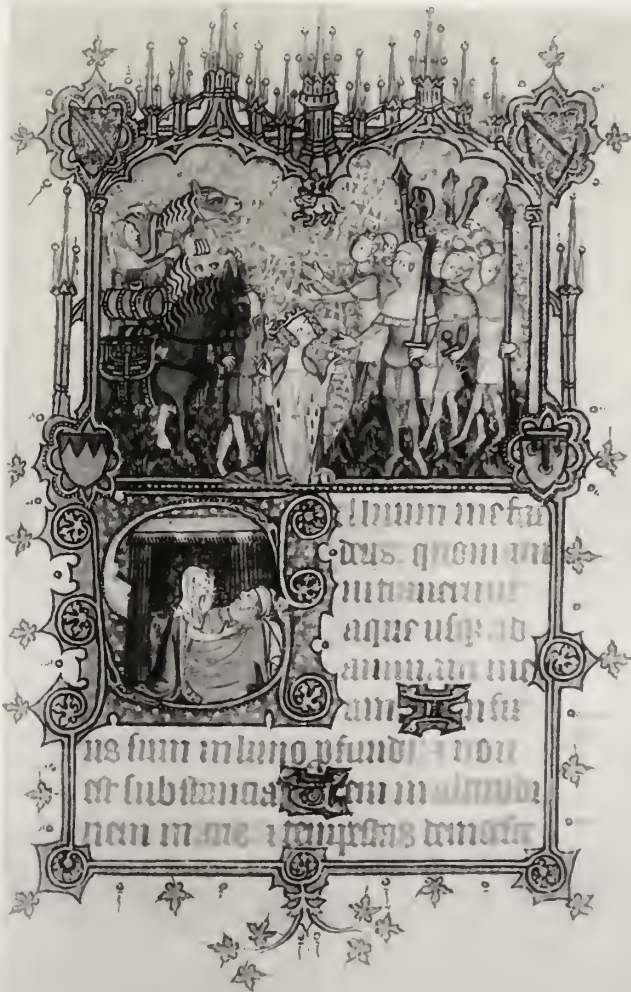 Saluum me fac
deus quoniam
intrauerunt
aque usq ad
animam me
am Infix
us sum in limo pfundi non
est substancia Veni in altitudi
nem maris tempestas demersit